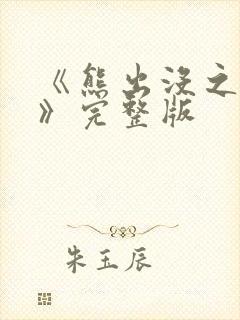 《熊出没之
》完整版
朱玉辰